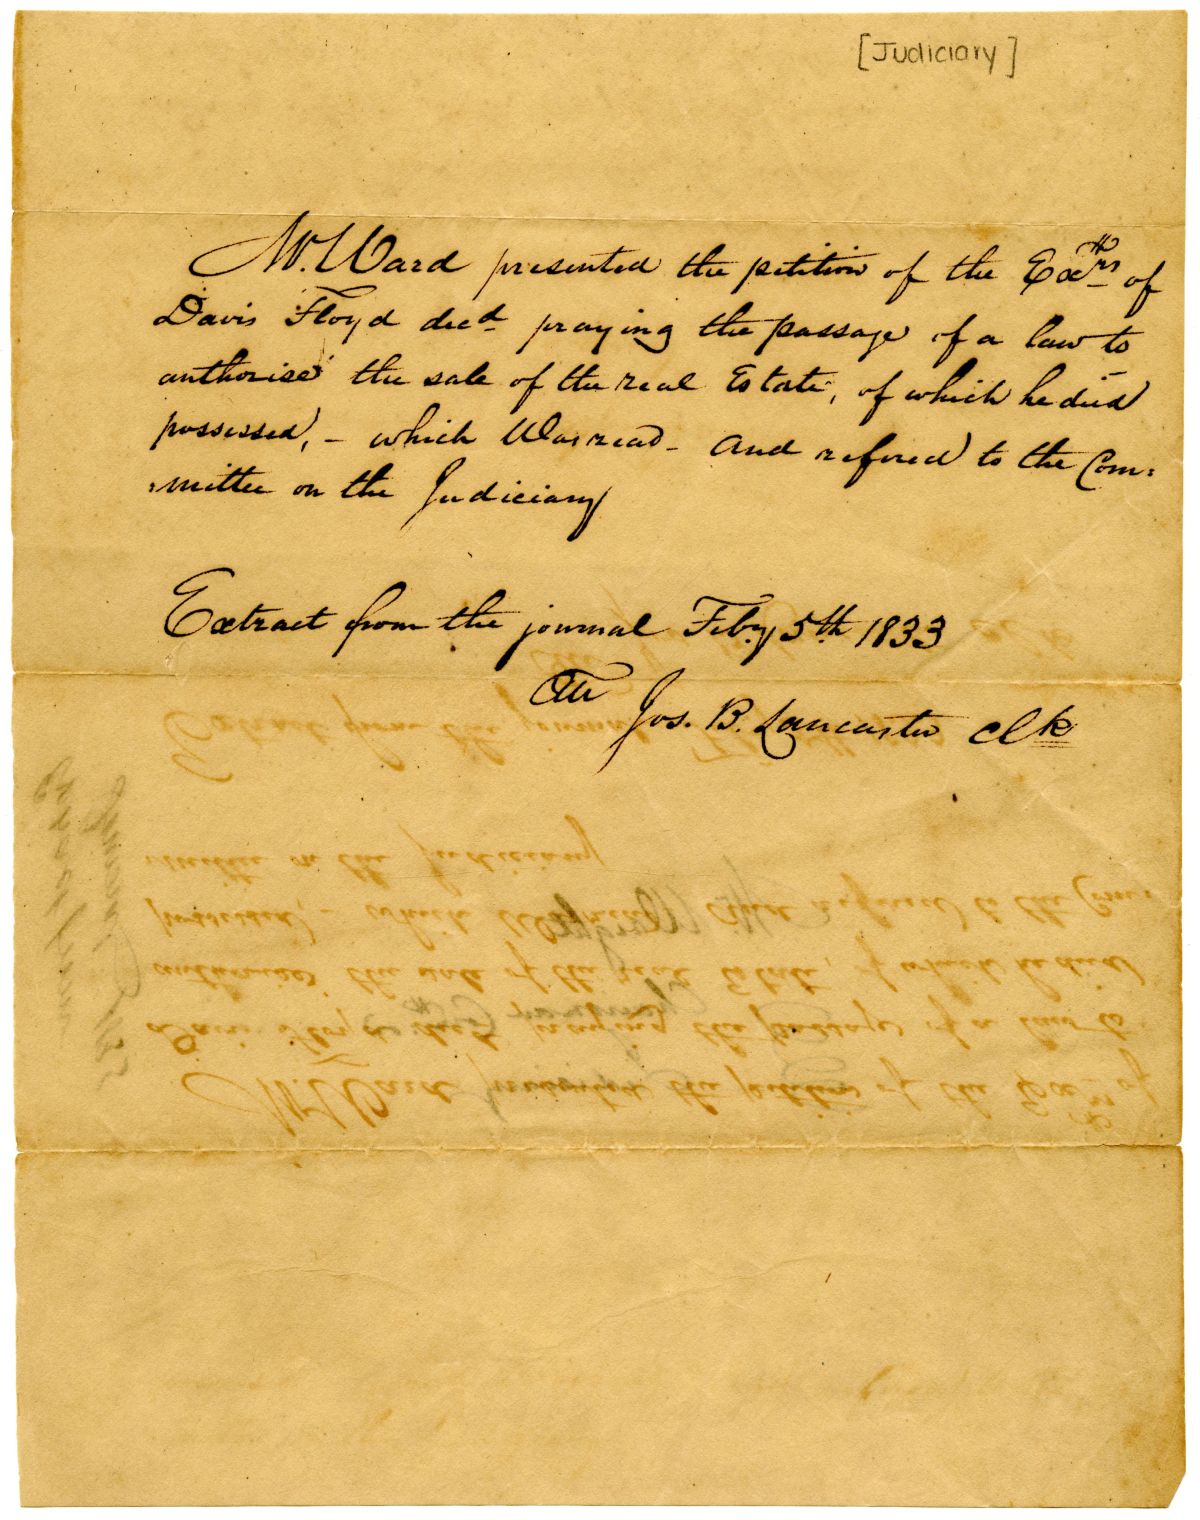 [Judiciary]
Mr. Ward presented the petition of the Exrs of
Davis Floyd decd praying the passage of a law to
authorise the sale of the real Estate, of which he died
possessed, - which Was read - and refered to the Com:
:mittee on the Judiciary
Extract from the journal Feby 5th 1833
Att
Jos. B. Lancaster Clk